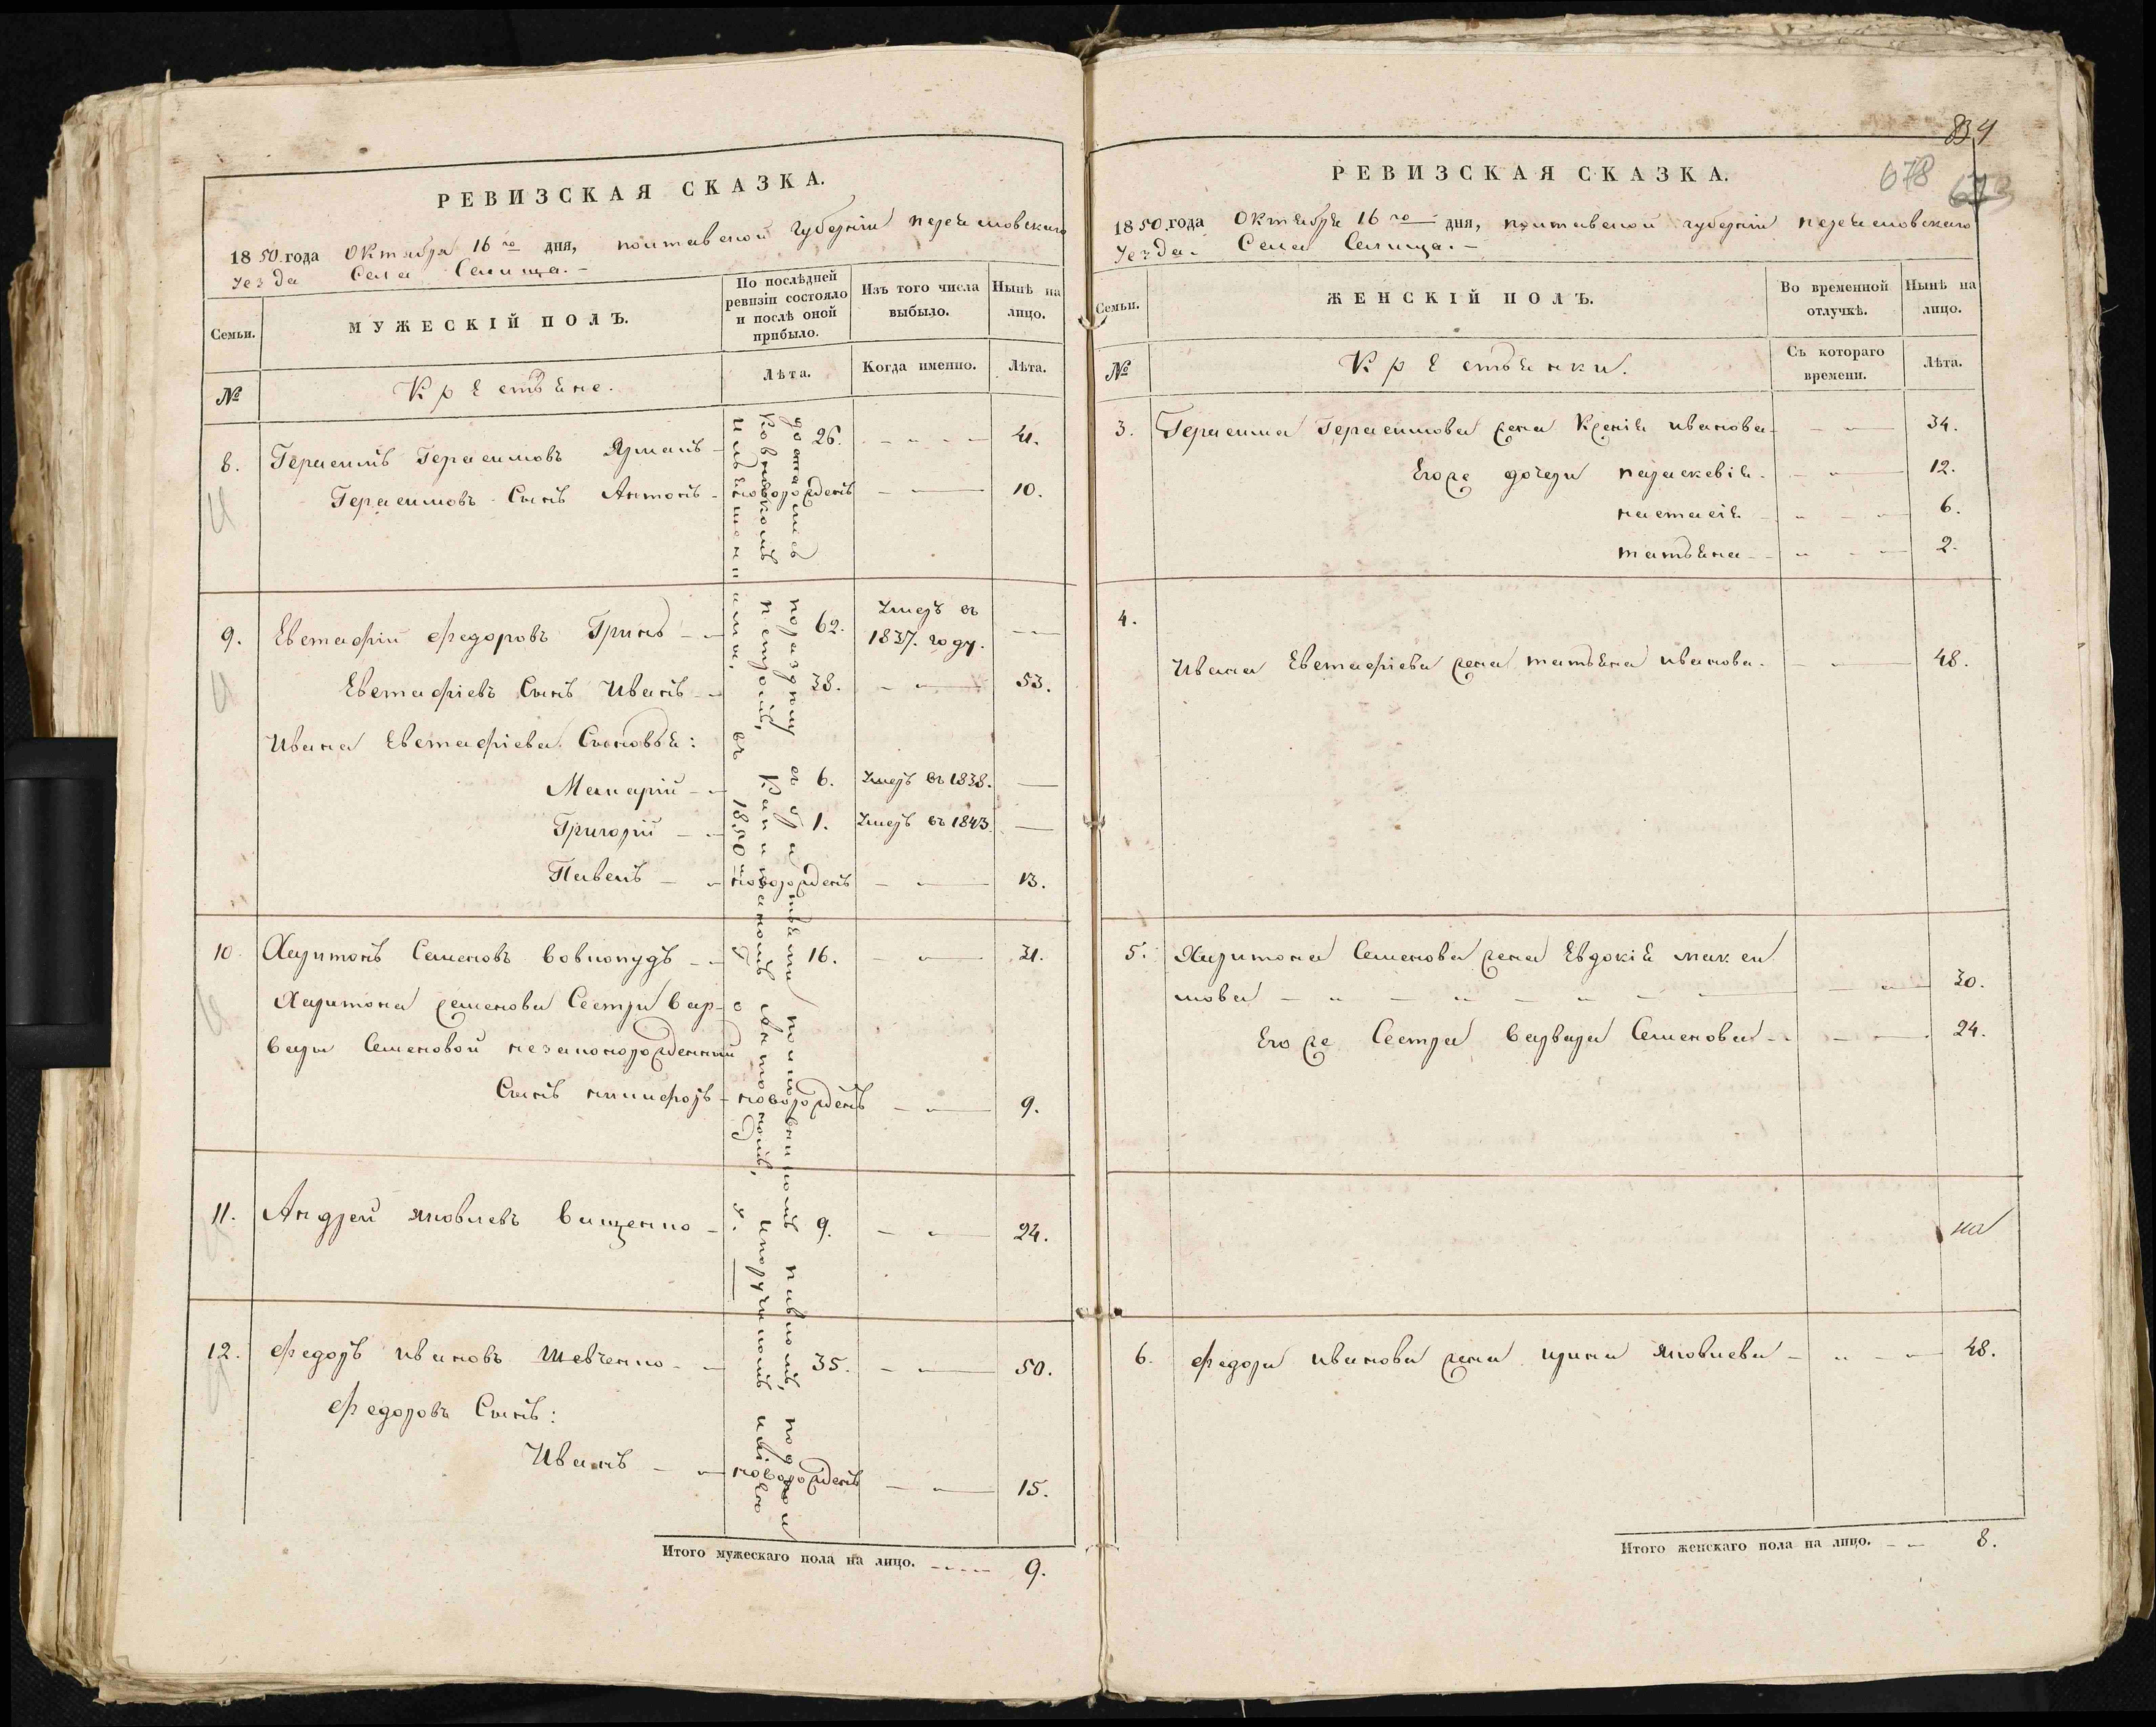 РЕВИЗСКАЯ СКАЗКА.
1850 года Октября 16го дня, полтавской губернии переяславского
уезда Села Селища.
Семьи.
МУЖЕСКІЙ ПОЛЪ.
По послѣдней ревизіи состояло и послѣ оной прибыло.
Изъ того числа выбыло.
Нынѣ на лицо.
№
Крестьяне.
Лѣта.
Когда именно.
Лѣта.
8. Герасимъ Герасимовъ 26. 41.
Герасимовъ Сынъ Антонъ новорожденъ 10.
9. Евстафій Федоровъ Гринь 62. Умеръ въ 1837. году.
Евстафіевъ Сынъ Иванъ 38. 53.
Ивана Евстафіева Сыновья:
Макарій 6. Умеръ въ 1838.
Григорій 1. Умеръ въ 1843.
Павелъ новорожденъ 13.
10. Харитонъ Семеновъ Вовкопудъ 16. 31.
Харитона Семенова Сестры Вар-
вары Семеновой незаконорожденный
Сынъ никифоръ новорожденъ 9.
11. Андрей яковлевъ Ващенко 9. 24.
12. Федоръ ивановъ Шевченко 35. 50.
Федоровъ Сынъ:
Иванъ новорожденъ 15.
достались поразделу съ братьями подпол
ковникомъ петромъ, капитаномъ
имѣніями, въ 1850 г.
Итого мужескаго пола на лицо. 9.
834
678
673
РЕВИЗСКАЯ СКАЗКА.
1850 года Октября 16го дня, полтавской губернии переяславского
уезда Села Селища.
Семьи.
ЖЕНСКІЙ ПОЛЪ.
Во временной отлучкѣ.
Нынѣ на лицо.
№
Крестьянки.
Съ котораго времени.
Лѣта.
3. Герасима Герасимова жена Ксенія иванова 34.
Егоже дочери параскевія 12.
настасія 6.
татьяна 2.
4.
Ивана Евстафіева жена татьяна иванова 48.
5. Харитона Семенова жена Евдокія макси
мова 30.
Егоже Сестра Варвара Семенова 24.
6. Федора иванова жена ирина яковлева 48.
Итого женскаго пола на лицо. 8.